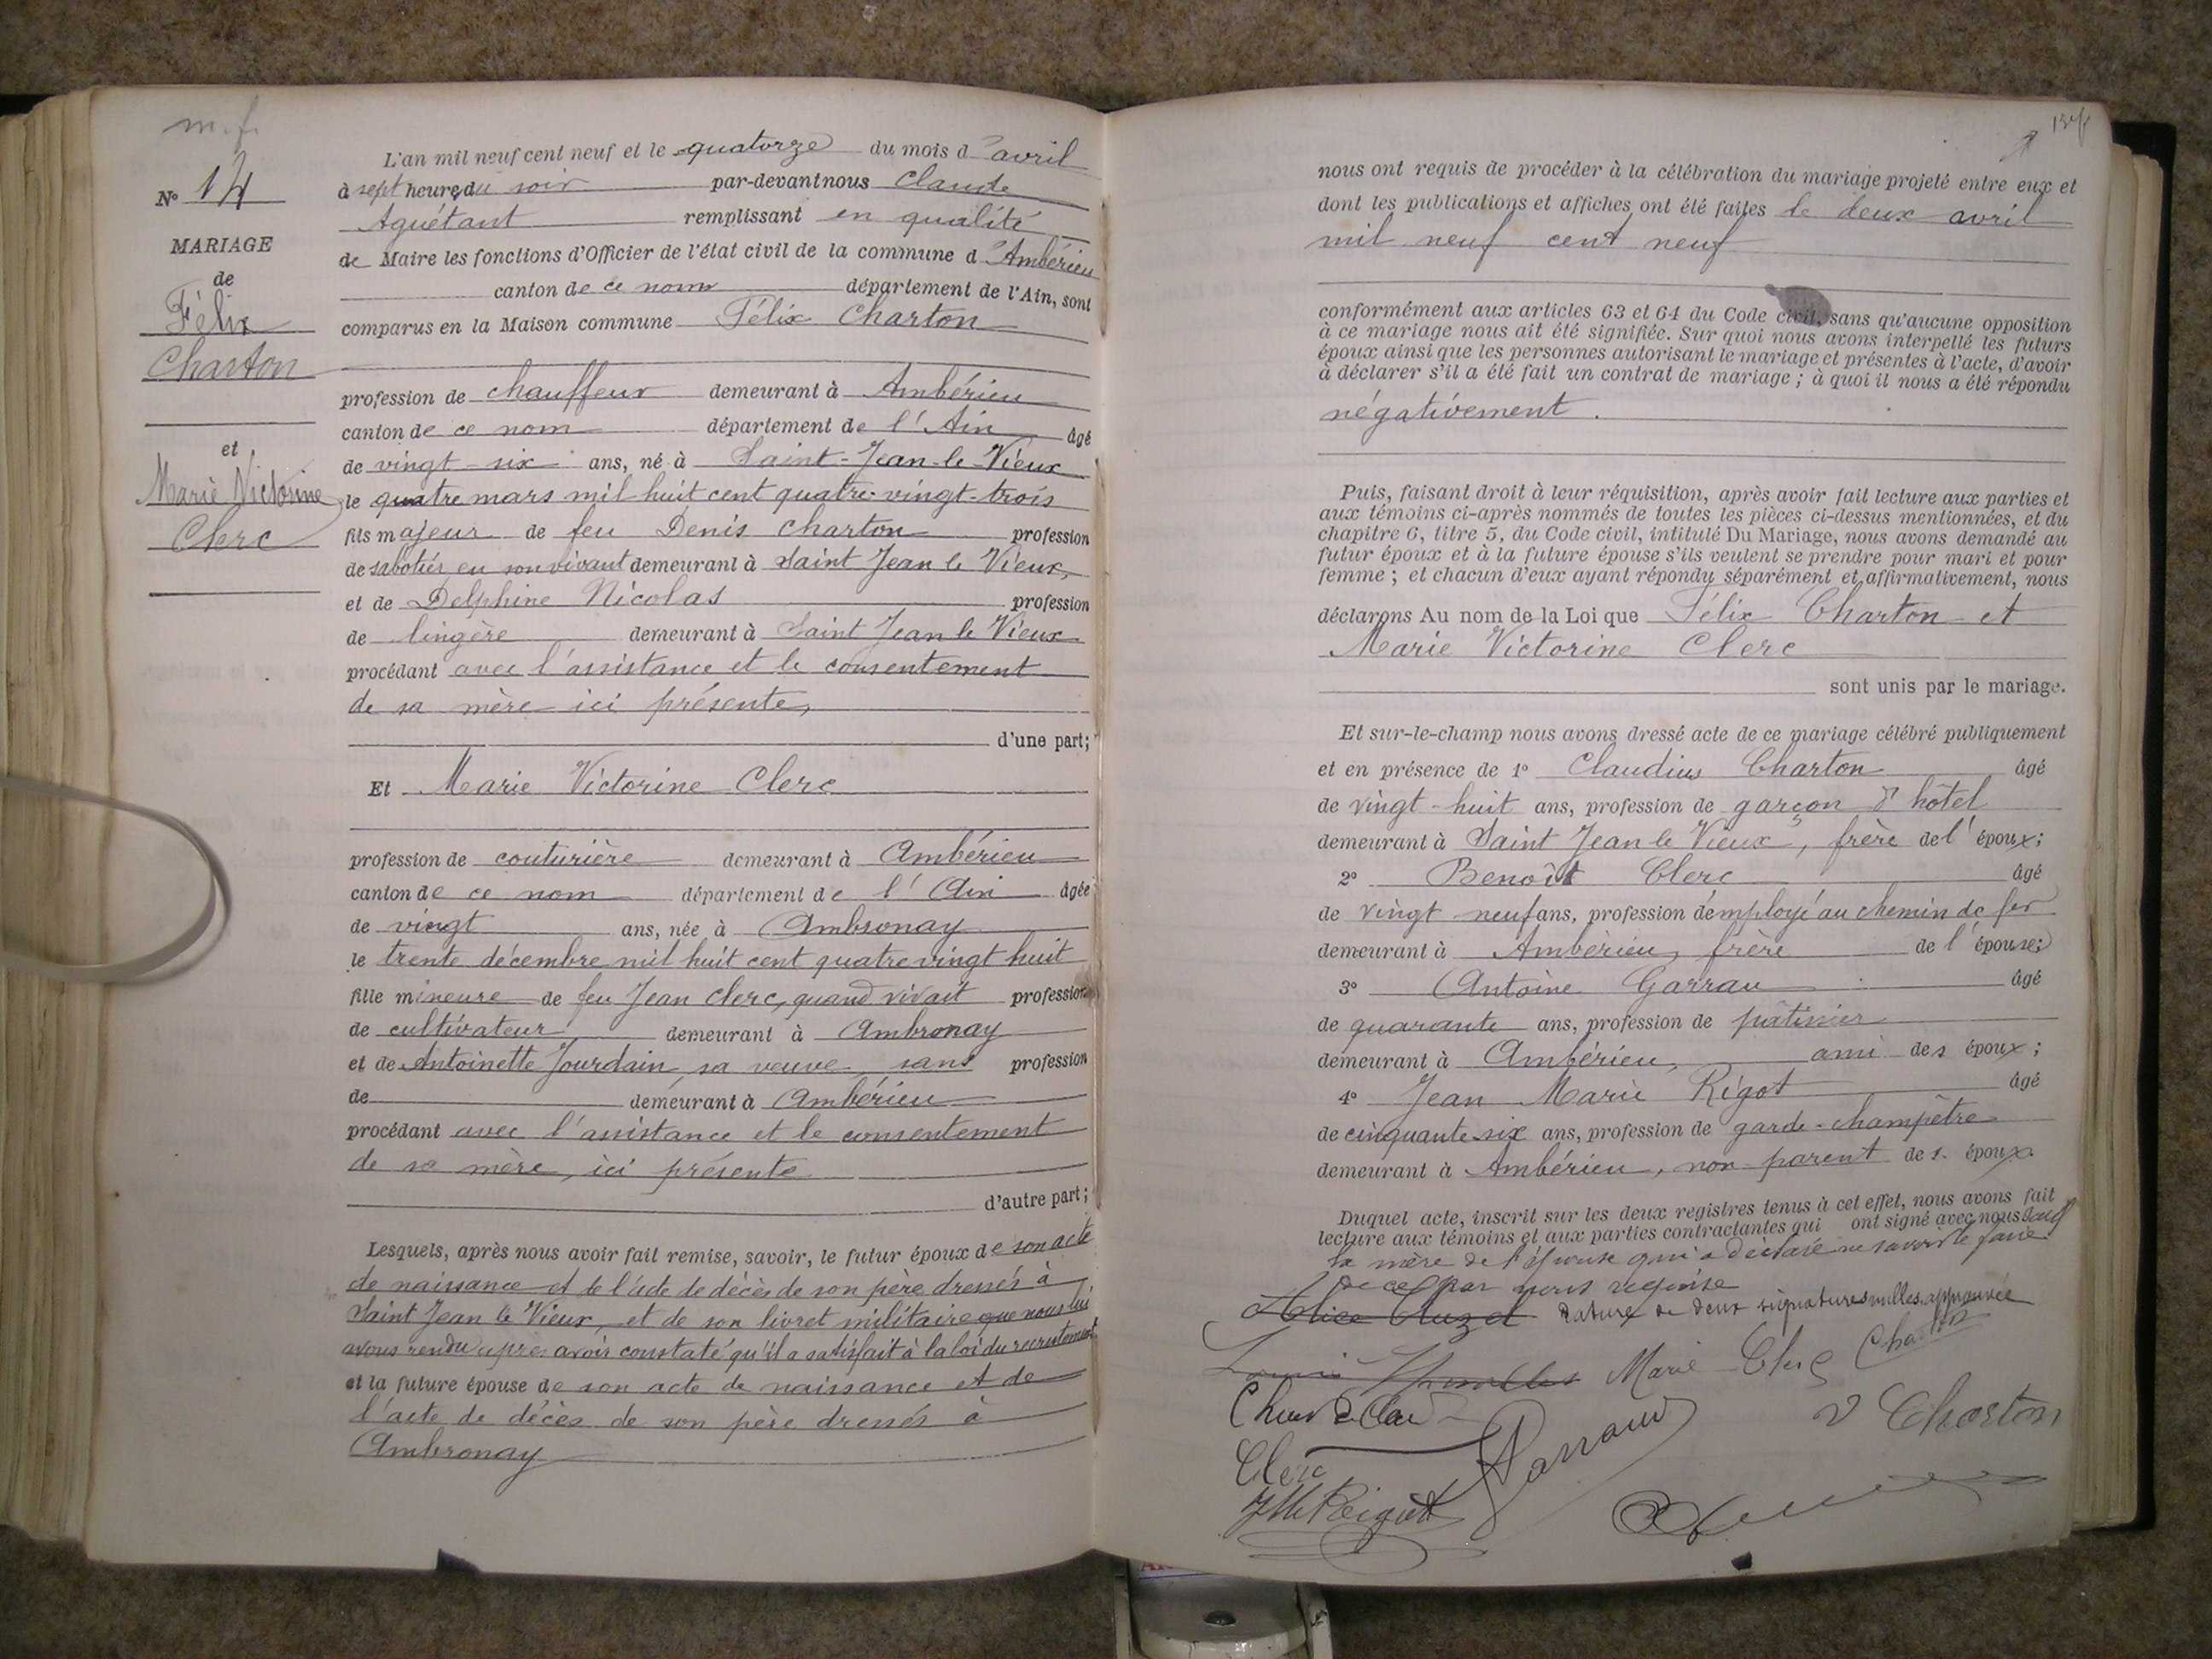 m.f.
N° 14
MARIAGE
de
Félix
Charton
et
Marie Victorine
Clerc
L'an mil neuf cent neuf et le quatorze du mois d'avril
à sept heures du soir par-devant nous Claude
Aguétant remplissant en qualité
de Maire les fonctions d'Officier de l'état civil de la commune d'Ambérieu
canton de ce nom département de l'Ain, sont
comparus en la Maison commune Félix Charton
profession de chauffeur demeurant à Ambérieu
canton de ce nom département de l'Ain âgé
de vingt-six ans, né à Saint-Jean-le-Vieux
le quatre mars mil huit cent quatre-vingt-trois
fils majeur de feu Denis Charton profession
de sabotier en son vivant demeurant à Saint Jean le Vieux,
et de Delphine Nicolas profession
de lingère demeurant à Saint Jean le Vieux
procédant avec l'assistance et le consentement
de sa mère ici présente,
d'une part;
Et Marie Victorine Clerc
profession de couturière demeurant à Ambérieu
canton de ce nom département de l'Ain âgée
de vingt ans, née à Ambronay
le trente décembre mil huit cent quatre vingt huit
fille mineure de feu Jean Clerc, quand vivait profession
de cultivateur demeurant à Ambronay
et de Antoinette Jourdain, sa veuve, sans profession
de demeurant à Ambérieu
procédant avec l'assistance et le consentement
de sa mère, ici présente
d'autre part;
Lesquels, après nous avoir fait remise, savoir, le futur époux de son acte
de naissance et de l'acte de décès de son père dressés à
Saint Jean le Vieux, et de son livret militaire que nous lui
avons rendu après avoir constaté qu'il a satisfait à la loi du recrutement
et la future épouse de son acte de naissance et de
l'acte de décès de son père dressés à
Ambronay
nous ont requis de procéder à la célébration du mariage projeté entre eux et
dont les publications et affiches ont été faites le deux avril
mil neuf cent neuf
conformément aux articles 63 et 64 du Code civil, sans qu'aucune opposition
à ce mariage nous ait été signifiée. Sur quoi nous avons interpellé les futurs
époux ainsi que les personnes autorisant le mariage et présentes à l'acte, d'avoir
à déclarer s'il a été fait un contrat de mariage; à quoi il nous a été répondu
négativement.
Puis, faisant droit à leur réquisition, après avoir fait lecture aux parties et
aux témoins ci-après nommés de toutes les pièces ci-dessus mentionnées, et du
chapitre 6, titre 5, du Code civil, intitulé Du Mariage, nous avons demandé au
futur époux et à la future épouse s'ils veulent se prendre pour mari et pour
femme; et chacun d'eux ayant répondu séparément et affirmativement, nous
déclarons Au nom de la Loi que Félix Charton et
Marie Victorine Clerc
sont unis par le mariage.
Et sur-le-champ nous avons dressé acte de ce mariage célébré publiquement
et en présence de 1° Claudius Charton âgé
de vingt-huit ans, profession de garçon d'hôtel
demeurant à Saint Jean le Vieux, frère de l'époux;
2° Benoît Clerc âgé
de vingt-neuf ans, profession d'employé au chemin de fer
demeurant à Ambérieu, frère de l'épouse;
3° Antoine Garrau âgé
de quarante ans, profession de pâtissier
demeurant à Ambérieu, ami des époux;
4° Jean Marie Rigot âgé
de cinquante-six ans, profession de garde-champêtre
demeurant à Ambérieu, non parent des époux.
Duquel acte, inscrit sur les deux registres tenus à cet effet, nous avons fait
lecture aux témoins et aux parties contractantes qui ont signé avec nous sauf
la mère de l'épouse qui a déclaré ne savoir le faire
de ce par nous requise
Alice Cluzel Rature de deux signatures nulles approuvée
Marie Clerc Charton
Clerc
Garraud
V Charton
JM Reigot